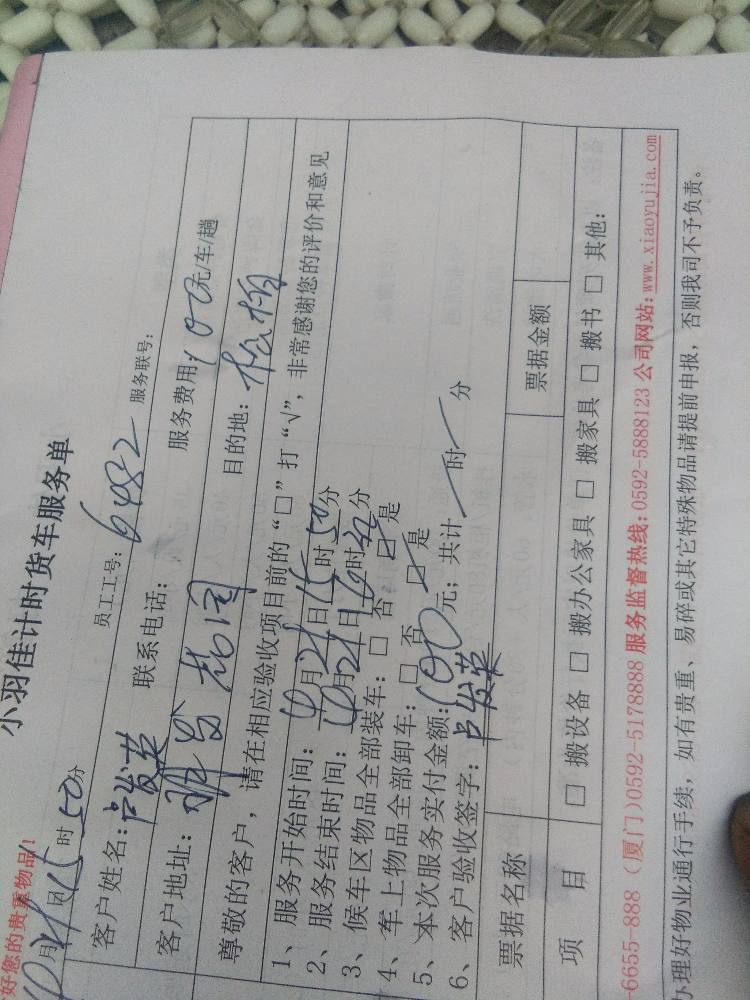 好您的贵重物品!
小羽佳计时货车服务单
10月21日15时50分 员工工号:6482 服务联号:
客户姓名:卢发英 联系电话: 服务费用:100元/车/趟
客户地址: 目的地:松柏
尊敬的客户,请在相应验收项目前的“□”打“√”,非常感谢您的评价和意见
1、服务开始时间:10月21日15时50分
2、服务结束时间:10月21日16时32分
3、候车区物品全部装车:□否 ☑是
4、车上物品全部卸车:□否 ☑是
5、本次服务实付金额:100元;共计/时/分
6、客户验收签字:卢发英
票据名称 票据金额
项目 □搬设备 □搬办公家具 □搬家具 □搬书 □其他:
6655-888 (厦门)0592-5178888 服务监督热线:0592-5888123 公司网站:www.xiaoyujia.com
办理好物业通行手续,如有贵重、易碎或其它特殊物品请提前申报,否则我司不予负责。